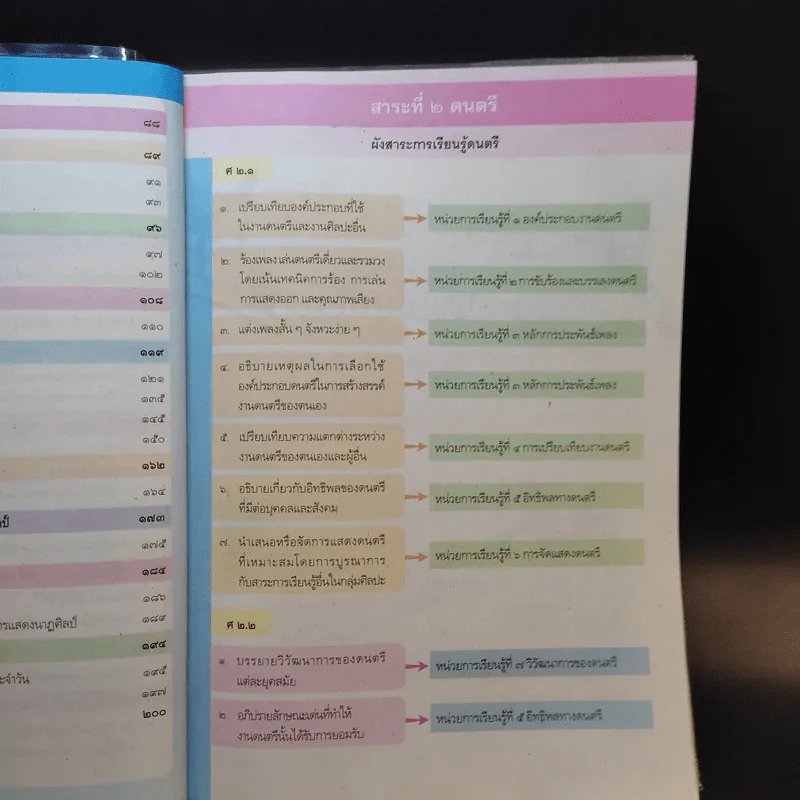 ๘๘
๘๙
๙๑
๙๓
๙๖
๙๗
๑๐๒
๑๐๘
๑๑๐
๑๑๙
๑๒๑
๑๓๕
๑๔๕
๑๕๐
๑๖๒
๑๖๔
๑๗๓
๑๗๕
๑๘๔
๑๘๖
ารแสดงนาฏศิลป์ ๑๘๙
๑๙๔
ะจำวัน ๑๙๕
๑๙๗
๒๐๐
สาระที่ ๒ ดนตรี
ผังสาระการเรียนรู้ดนตรี
ศ ๒.๑
๑. เปรียบเทียบองค์ประกอบที่ใช้
ในงานดนตรีและงานศิลปะอื่น
หน่วยการเรียนรู้ที่ ๑ องค์ประกอบงานดนตรี
๒. ร้องเพลง เล่นดนตรีเดี่ยวและรวมวง
โดยเน้นเทคนิคการร้อง การเล่น
การแสดงออก และคุณภาพเสียง
หน่วยการเรียนรู้ที่ ๒ การขับร้องและบรรเลงดนตรี
๓. แต่งเพลงสั้น ๆ จังหวะง่าย ๆ
หน่วยการเรียนรู้ที่ ๓ หลักการประพันธ์เพลง
๔. อธิบายเหตุผลในการเลือกใช้
องค์ประกอบดนตรีในการสร้างสรรค์
งานดนตรีของตนเอง
หน่วยการเรียนรู้ที่ ๓ หลักการประพันธ์เพลง
๕. เปรียบเทียบความแตกต่างระหว่าง
งานดนตรีของตนเองและผู้อื่น
หน่วยการเรียนรู้ที่ ๔ การเปรียบเทียบงานดนตรี
๖. อธิบายเกี่ยวกับอิทธิพลของดนตรี
ที่มีต่อบุคคลและสังคม
หน่วยการเรียนรู้ที่ ๕ อิทธิพลทางดนตรี
๗. นำเสนอหรือจัดการแสดงดนตรี
ที่เหมาะสมโดยการบูรณาการ
กับสาระการเรียนรู้อื่นในกลุ่มศิลปะ
หน่วยการเรียนรู้ที่ ๖ การจัดแสดงดนตรี
ศ ๒.๒
๑. บรรยายวิวัฒนาการของดนตรี
แต่ละยุคสมัย
หน่วยการเรียนรู้ที่ ๗ วิวัฒนาการของดนตรี
๒. อภิปรายลักษณะเด่นที่ทำให้
งานดนตรีนั้นได้รับการยอมรับ
หน่วยการเรียนรู้ที่ ๕ อิทธิพลทางดนตรี